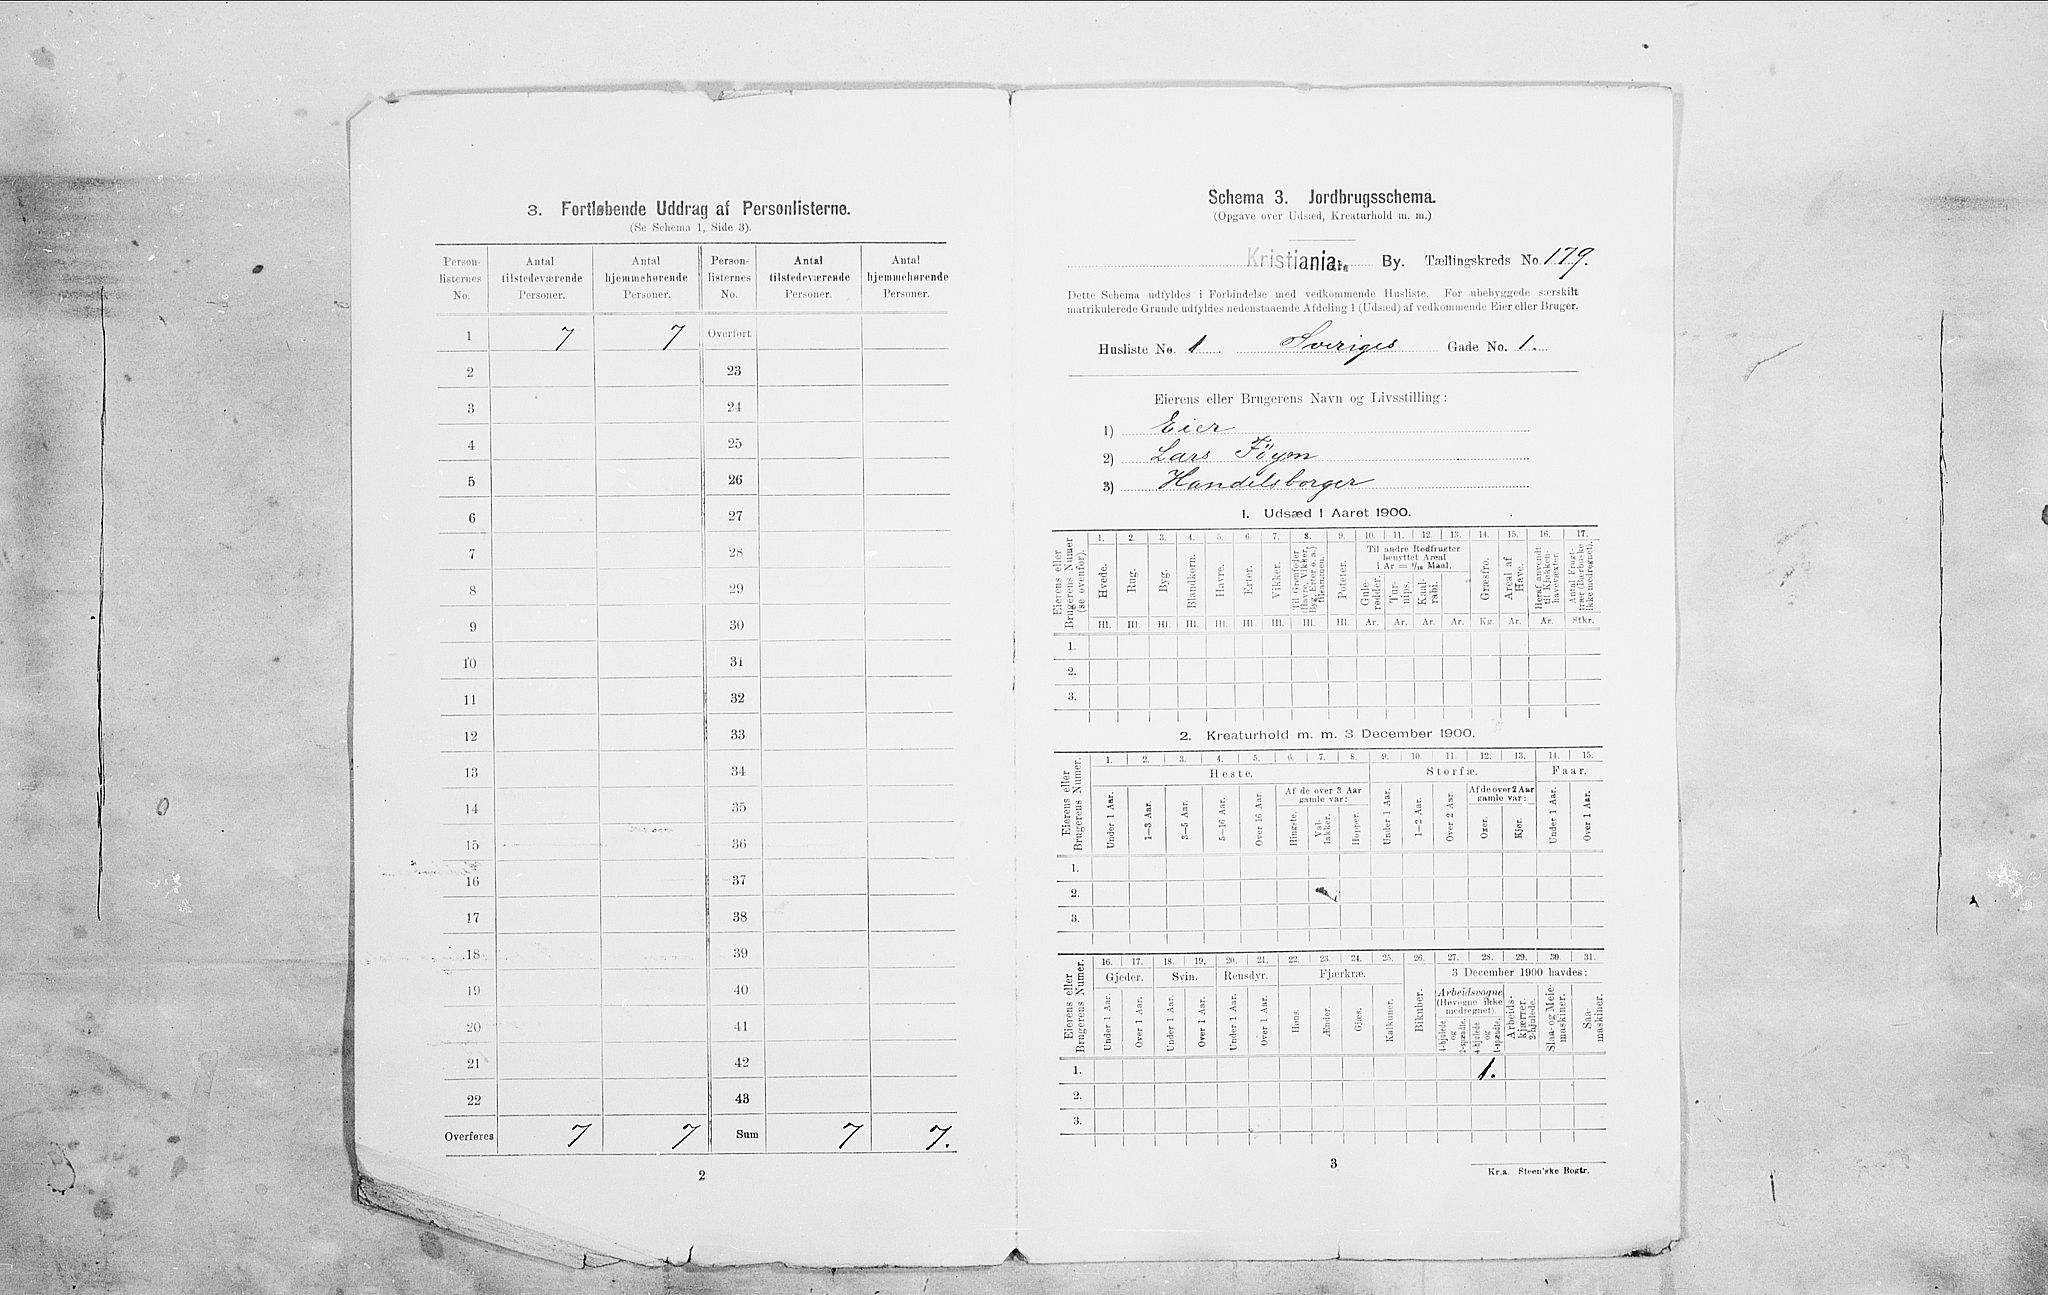 3. Fortløbende Uddrag af Personlisterne.
(Se Schema 1, Side 3).
Person-listernes No. Antal tilstedeværende Personer. Antal hjemmehørende Personer. Person-listernes No. Antal tilstedeværende Personer. Antal hjemmehørende Personer.
1 7 7 Overført
2 23
3 24
4 25
5 26
6 27
7 28
8 29
9 30
10 31
11 32
12 33
13 34
14 35
15 36
16 37
17 38
18 39
19 40
20 41
21 42
22 43
Overføres 7 7 Sum 7 7.
2
Schema 3. Jordbrugsschema.
(Opgave over Udsæd, Kreaturhold m. m.)
Kristiania By. Tællingskreds No. 179.
Dette Schema udfyldes i Forbindelse med vedkommende Husliste. For ubebyggede særskilt
matrikulerede Grunde udfyldes nedenstaaende Afdeling 1 (Udsæd) af vedkommende Eier eller Bruger.
Husliste No. 1 Sveriges Gade No. 1.
Eierens eller Brugerens Navn og Livsstilling:
1) Eier
2) Lars Föyn
3) Handelsborger
1. Udsæd i Aaret 1900.
1. 2. 3. 4. 5. 6. 7. 8. 9. 10. 11. 12. 13. 14. 15. 16. 17.
Eierens eller Brugerens Numer (se ovenfor). Hvede. Rug. Byg. Blandkorn. Havre. Erter. Vikker. Til Grønfoder (Havre, Vikker, Byg, Erter o. a.) tilsammen. Poteter. Til andre Rodfrugter benyttet Areal i Ar = 1/10 Maal. Gule-rødder. Tur-nips. Kaal-rabi. Græsfrø. Areal af Have. Heraf anvendt til Kjøkken-havevæxter. Antal Frugt-trær (Bærbuske ikke medregnet).
Hl. Hl. Hl. Hl. Hl. Hl. Hl. Hl. Hl. Ar. Ar. Ar. Ar. Kg. Ar. Ar. Stkr.
1.
2.
3.
2. Kreaturhold m. m. 3 December 1900.
1. 2. 3. 4. 5. 6. 7. 8. 9. 10. 11. 12. 13. 14. 15.
Heste. Storfæ. Faar.
Eierens eller Brugerens Numer. Under 1 Aar. 1—3 Aar. 3—5 Aar. 5—16 Aar. Over 16 Aar. Af de over 3 Aar gamle var: Hingste. Val-lakker. Hopper. Under 1 Aar. 1—2 Aar. Over 2 Aar. Af de over 2 Aar gamle var: Oxer. Kjør. Under 1 Aar. Over 1 Aar.
1.
2.
3.
16. 17. 18. 19. 20. 21. 22. 23. 24. 25. 26. 27. 28. 29. 30. 31.
Gjeder. Svin. Rensdyr. Fjærkræ. 3 December 1900 havdes:
Eierens eller Brugerens Numer. Under 1 Aar. Over 1 Aar. Under 1 Aar. Over 1 Aar. Under 1 Aar. Over 1 Aar. Høns. Ænder. Gjæs. Kalkuner. Bikuber. Arbeidsvogne (Høvogne ikke medregnet). 4-hjulede og 2-spændte. 4-hjulede og 1-spændte. Arbeids-kjærrer, 2-hjulede. Slaa- og Meie-maskiner. Saa-maskiner.
1. 1.
2.
3.
3
Kr.a. Steen'ske Bogtr.